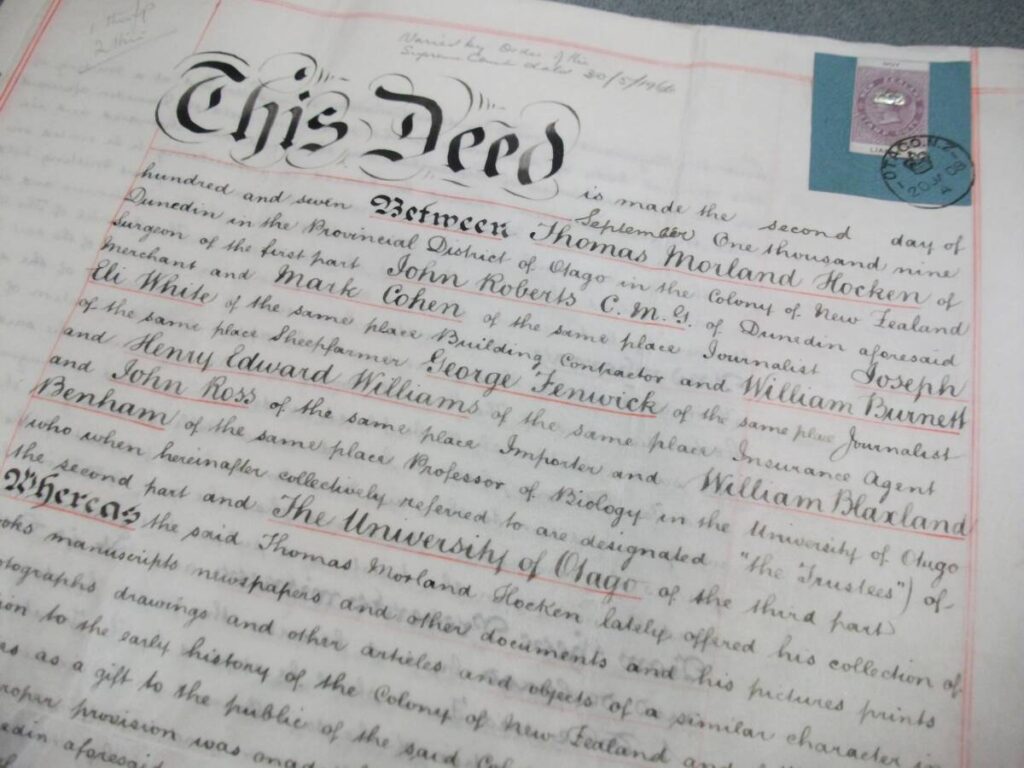 Varied by Order of the
Supreme Court dated 20/5/1966
OTAGO.N.Z
This Deed is made the second day of
September One thousand nine
hundred and seven Between Thomas Morland Hocken of
Dunedin in the Provincial District of Otago in the Colony of New Zealand
Surgeon of the first part John Roberts C.M.G. of Dunedin aforesaid
Merchant and Mark Cohen of the same place Journalist Joseph
Eli White of the same place Building Contractor and William Burnett
of the same place Sheepfarmer George Fenwick of the same place Journalist
and Henry Edward Williams of the same place Insurance Agent
and John Ross of the same place Importer and William Blaxland
Benham of the same place Professor of Biology in the University of Otago
(who when hereinafter collectively referred to are designated "the Trustees") of
the second part and The University of Otago of the third part
Whereas the said Thomas Morland Hocken lately offered his collection of
ooks manuscripts newspapers and other documents and his pictures prints
otographs drawings and other articles and objects of a similar character in
ion to the early history of the Colony of New Zealand and
as a gift to the public of the said Col
roper provision was
edin aforesaid